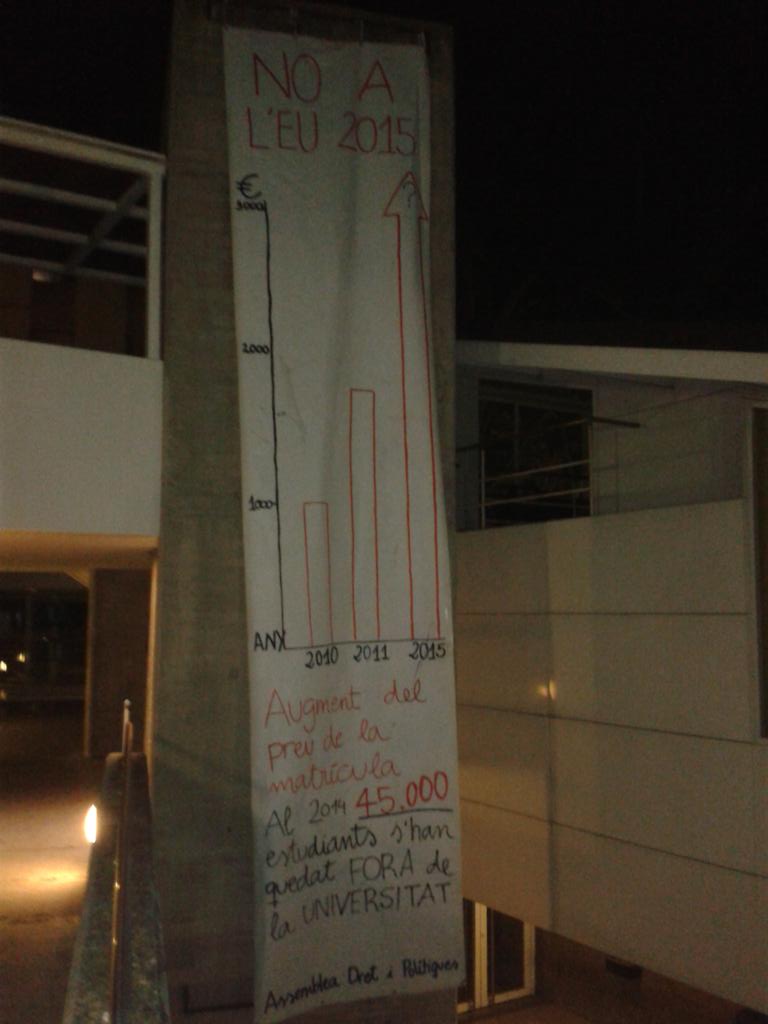 NO A
L'EU 2015
€
3000
2000
1000
ANY
2010 2011 2015
?
Augment del
preu de la
matrícula
Al 2014 45.000
estudiants s'han
quedat FORA de
la UNIVERSITAT
Assemblea Dret i Polítiques